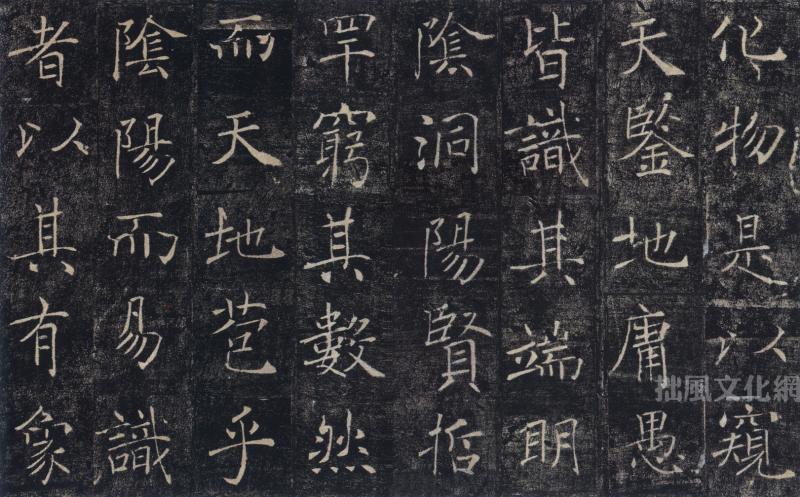 化物是以窺
天鑒地庸愚
皆識其端明
陰洞陽賢哲
罕窮其數然
而天地苞乎
陰陽而易識
者以其有象
拙風文化網